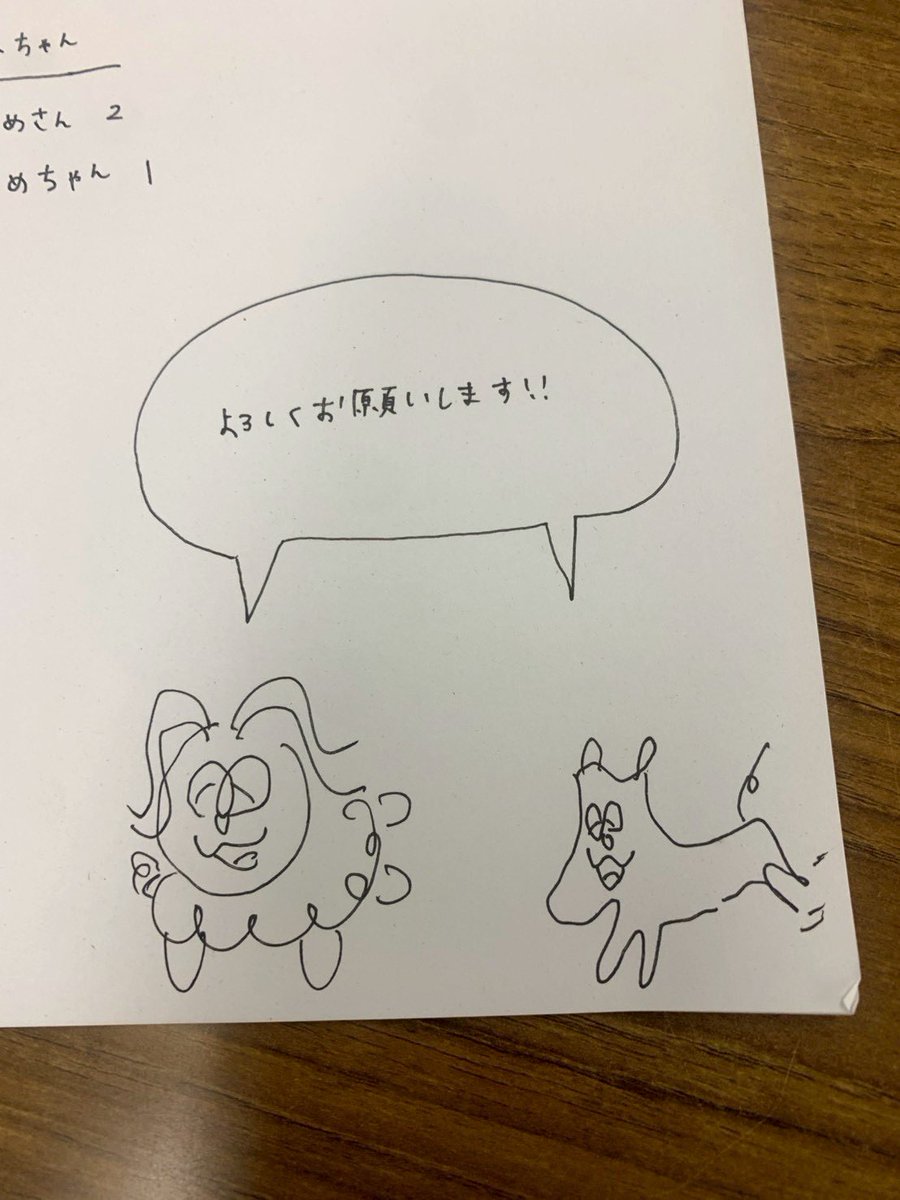 ちゃん
めさん 2
めちゃん 1
よろしくお願いします!!